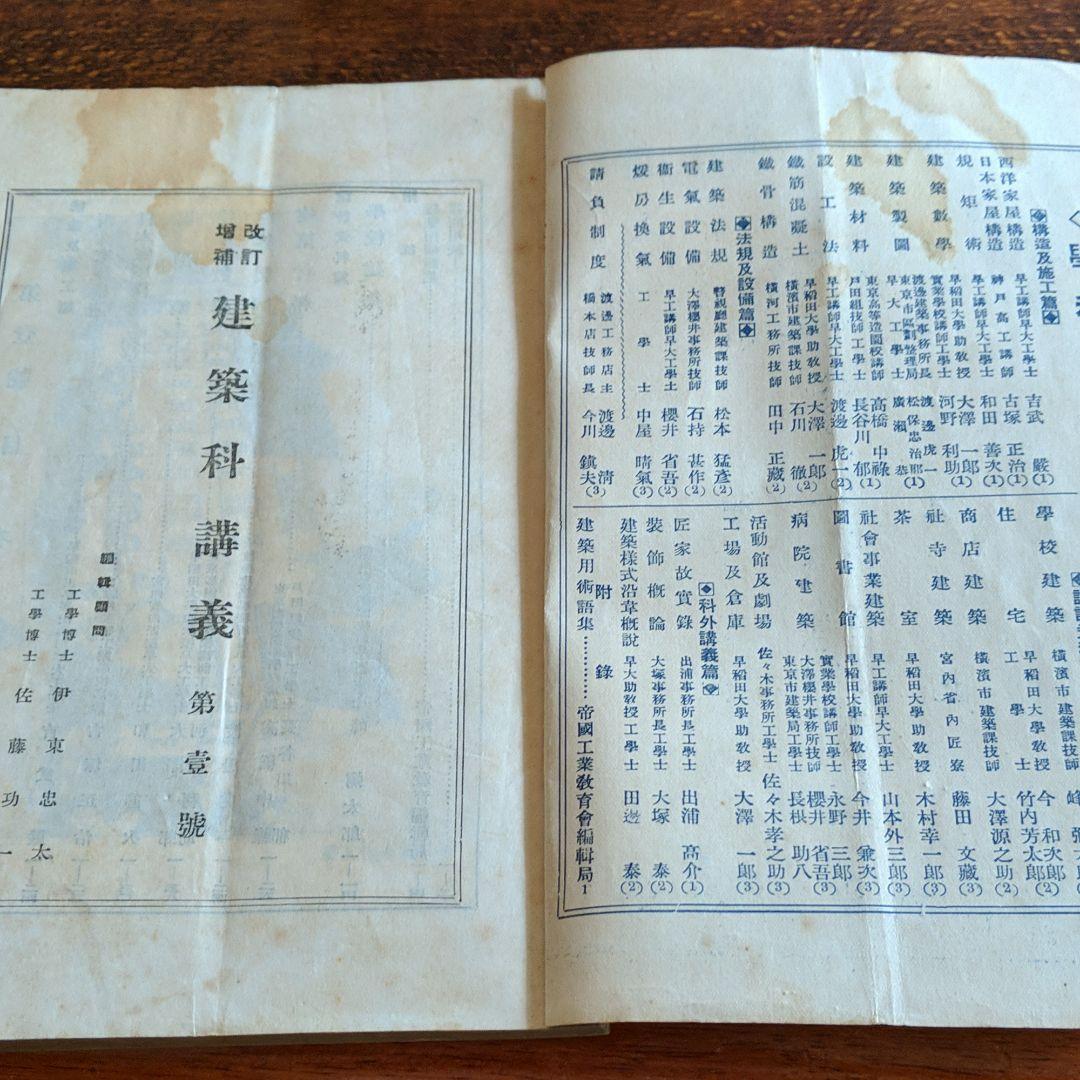 ◈構造及施工篇◈
西洋家屋構造 早工講師早大工學士 吉武 嚴(1)
日本家屋構造 神戸高工講師 古塚 正治(1)
早工講師早大工學士 和田 善次(1)
規矩術 早稻田大學助敎授 大澤 一郎(1)
建築數學 實業學校講師工學士 河野 利助(1)
渡邊建築事務所長 渡邊虎一
建築製圖 東京市區劃整理局 松保忠治郎(1)
早大工學士 廣瀬 恭
建築材料 東京高等造園校講師 高橋 中祿
戸田組技師工學士 長谷川 郁(1)
設工法 早工講師早大工學士 渡邊 虎一(2)
鐵筋混凝土 早稻田大學助敎授 大澤 一郎(2)
橫濱市建築課技師 石川 徹(2)
鐵骨構造 橫河工務所技師 田中 正藏(2)
◈法規及設備篇◈
建築法規 警視廳建築課技師 松本 猛彥(2)
電氣設備 大澤櫻井事務所技師 石持 甚作(2)
衞生設備 早工講師早大工學士 櫻井 省吾(2)
煖房換氣 工學士 中屋 晴氣(3)
請負制度 渡邊工務店主 渡邊 淸
橋本店技師長 今川 鎭夫(3)
學校建築 橫濱市建築課技師 峰
住宅 早稻田大學敎授 今 和次郎(2)
工學士 竹内芳太郎
商店建築 橫濱市建築課技師 大澤源之助(2)
社寺建築 宮内省内匠寮 藤田 文藏(3)
茶室 早稻田大學助敎授 木村幸一郎(3)
社會事業建築 早工講師早大工學士 山本外三郎(3)
圖書館 早稻田大學助敎授 今井 兼次(2)
實業學校講師工學士 永野 三郎
病院建築 大澤櫻井事務所技師 櫻井 省吾(3)
東京市建築局工學士 長根 助八
活動館及劇場 佐々木事務所工學士 佐々木孝之助(3)
工場及倉庫 早稻田大學助敎授 大澤 一郎(3)
◈科外講義篇◈
匠家故實錄 出浦事務所長工學士 出浦 高介(1)
裝飾概論 大塚事務所長工學士 大塚 泰(2)
建築樣式沿革槪說 早大助敎授工學士 田邊 泰(2)
附錄
建築用術語集…………帝國工業敎育會編輯局1
改訂
增補
建築科講義 第壹號
編輯顧問
工學博士 伊東忠太
工學博士 佐藤功一